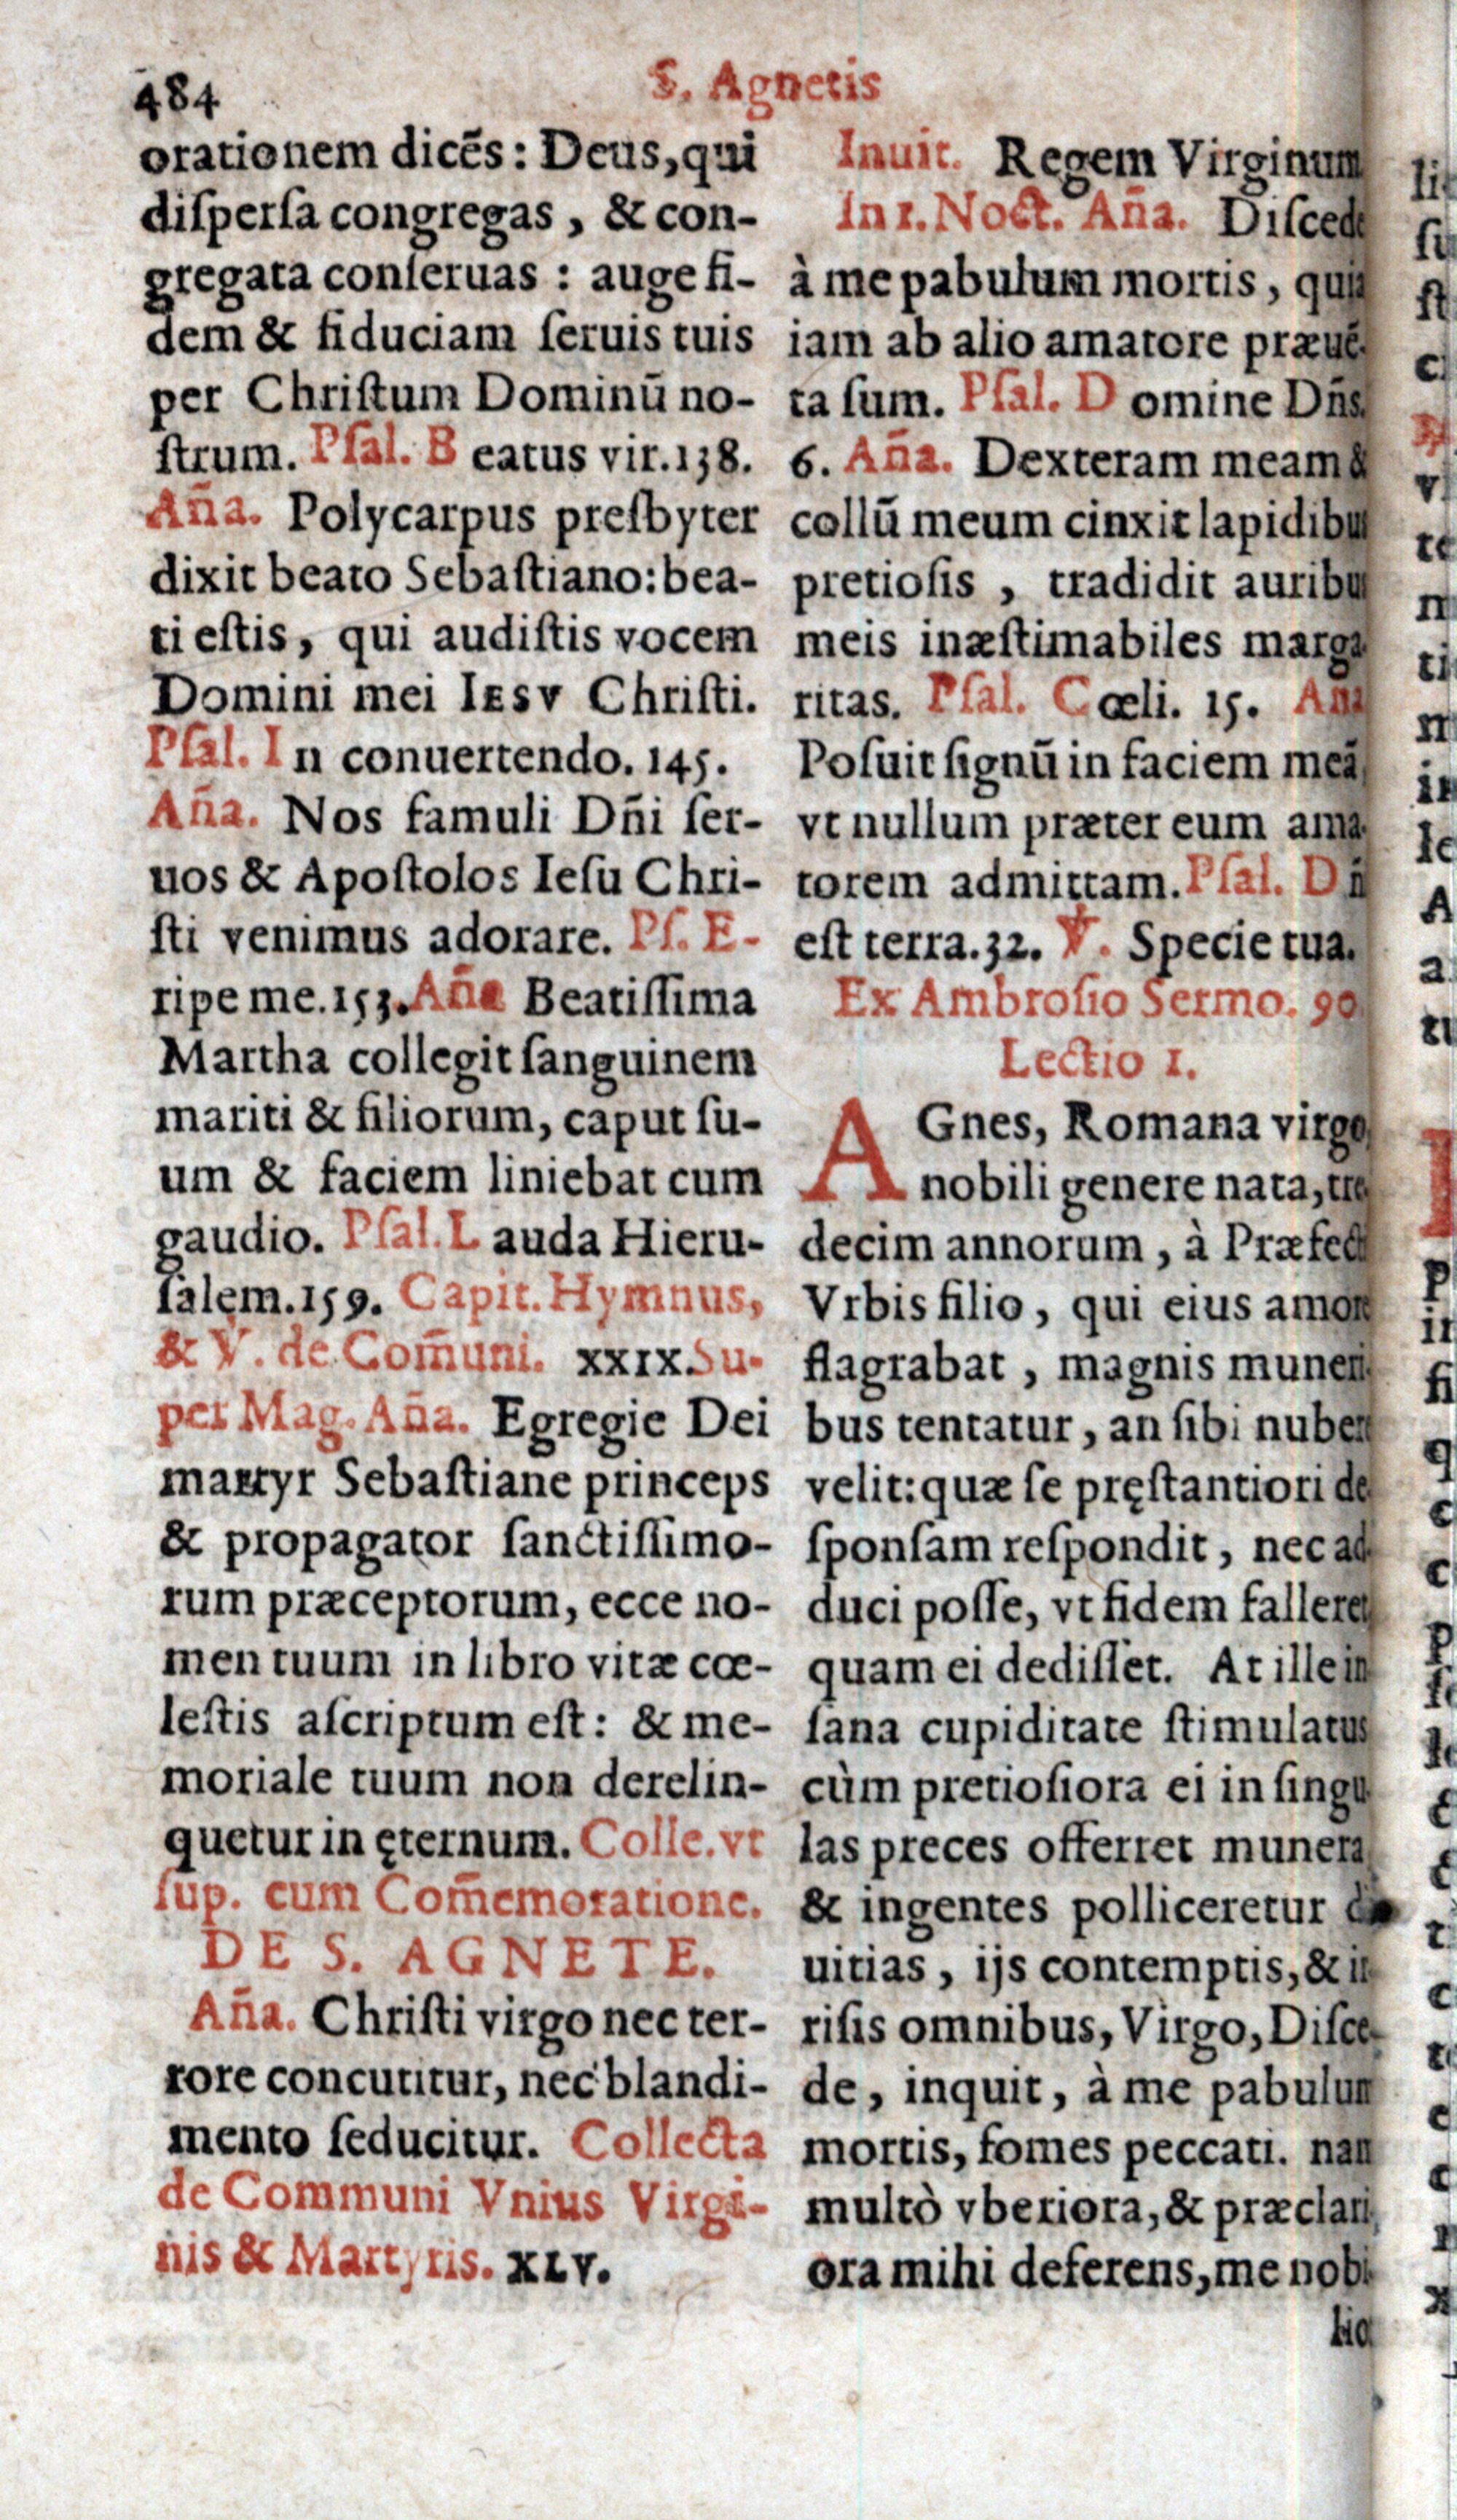 484
S. Agnetis
orationem dicẽs: Deus, qui
diſperſa congregas, & con-
gregata conſeruas: auge fi-
dem & fiduciam ſeruis tuis
per Chriſtum Dominũ no-
ſtrum. Pſal. B eatus vir. 138.
Añа. Polycarpus preſbyter
dixit beato Sebaſtiano: bea-
ti eſtis, qui audiſtis vocem
Domini mei IESV Chriſti.
Pſal. I n conuertendo. 145.
Aña. Nos famuli Dñi ſer-
uos & Apoſtolos Ieſu Chri-
ſti venimus adorare. Pſ. E-
ripe me. 153. Aña Beatiſſima
Martha collegit ſanguinem
mariti & filiorum, caput ſu-
um & faciem liniebat cum
gaudio. Pſal. L auda Hieru-
ſalem. 159. Capit. Hymnus,
& V. de Com̃uni. XXIX. Su-
per Mag. Aña. Egregie Dei
martyr Sebaſtiane princeps
& propagator ſanctiſſimo-
rum præceptorum, ecce no-
men tuum in libro vitæ cœ-
leſtis aſcriptum eſt: & me-
moriale tuum non derelin-
quetur in ęternum. Colle. vt
ſup. cum Com̃emoratione.
DE S. AGNETE.
Aña. Chriſti virgo nec ter-
rore concutitur, nec blandi-
mento ſeducitur. Collecta
de Communi Vnius Virgi-
nis & Martyris. XLV.
Inuit. Regem Virginum
In 1. Noct. Aña. Diſcede
à me pabulum mortis, quia
iam ab alio amatore præuẽ-
ta ſum. Pſal. D omine Dñs.
6. Aña. Dexteram meam &
collũ meum cinxit lapidibus
pretioſis, tradidit auribus
meis inæſtimabiles marga-
ritas. Pſal. C œli. 15. Aña
Poſuit ſignũ in faciem meã,
vt nullum præter eum ama-
torem admittam. Pſal. D ñi
eſt terra. 32. ℣. Specie tua.
Ex Ambroſio Sermo. 90.
Lectio 1.
AGnes, Romana virgo,
nobili genere nata, tre-
decim annorum, à Præfecti
Vrbis filio, qui eius amore
flagrabat, magnis muneri-
bus tentatur, an ſibi nubere
velit: quæ ſe pręſtantiori de-
ſponſam reſpondit, nec ad-
duci poſſe, vt fidem falleret,
quam ei dediſſet. At ille in-
ſana cupiditate ſtimulatus
cùm pretioſiora ei in ſingu-
las preces offerret munera,
& ingentes polliceretur di-
uitias, ijs contemptis, & ir-
riſis omnibus, Virgo, Diſce-
de, inquit, à me pabulum
mortis, fomes peccati. nam
multò vberiora, & præclari-
ora mihi deferens, me nobi-
lio